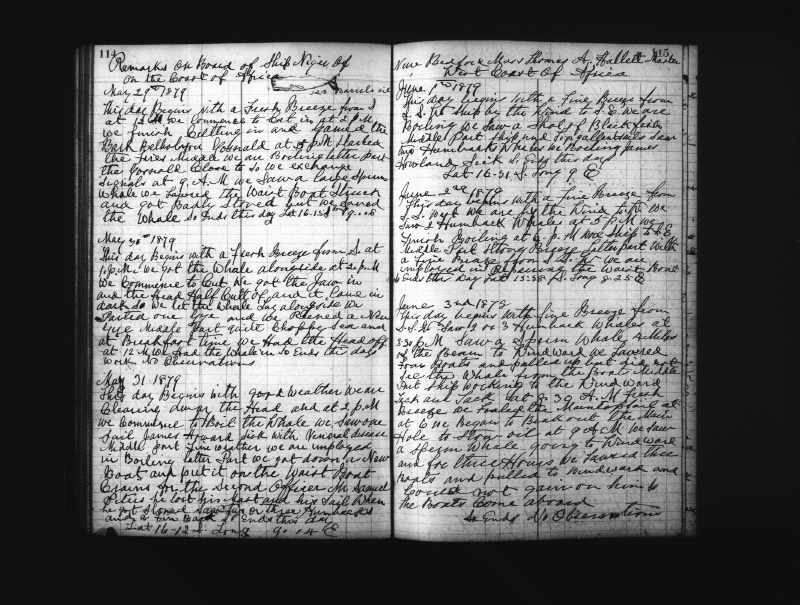 114
Remarks On Board of Ship Niger Of
on the Coast of Africa
120 Barrels oil
May 29th 1879
This day Begins with a Fresh Breeze from S
at 12 M We Commence to Cut in at 2 P.M
we finish Cutting in and Gamed the
Bark Donald at 3 P.M Started
the Fires Middle we are Boiling latter part
the Close to So we exchange
Signals at 9 A.M We Saw a large Sperm
Whale we Lowred the Waist Boat Struck
and got Badly Stoved but we Saved
the Whale So Ends this day Lat 16-15 S Long 9-08
May 30th 1879
This day Begins with a fresh Breeze from S. at
1 P.M. We got the Whale alongside at 2 P.M
We Commence to Cut We got the Jaw in
and the Head Half Cutt of and it Came in
dark So We let the Whale Lay alongside We
Parted one and we a New
Middle Part quite Choppy Sea and
at Breakfast time We Had the Head off
at 12 M We Had the Whale in So Ends this days
Work No Observations
May 31 1879
This day Begins with good Weather We are
Clearing away the Head and at 2 P.M
We Commence to Boil the Whale We Saw one
Sail James Howard Sick with Veneral disease
Middle part fine weather we are imployed
in Boiling latter Part We got down a New
Boat and put it on the Waist Boat
Crains for the Second Officer Mr Samuel
Peters he lost his Mast and his Sail When
he got Stoved Saw two or three Humbacks
and a Fin Back So Ends this day
Lat 16-12 S Long 9-04 E
115
New Bedford Mass Thomas A. Hallett Master
West Coast Of Africa
June 1st 1879
This day begins With a Fine Breeze from
S.S.W Ship by the Wind to S.E we are
Boiling We Saw a Shoal of Blackfish
Middle Part Ship under Topgallantsails Saw
two Humback Whales We Boiling James
Howland Sick So Ends this day
Lat 16-31 S. Long 9 E
June 2nd 1879
This day begins with a Fine Breeze from
S.S. West We are by the Wind to W We
Saw 2 Humback Whales at 5 P.M We
Finish Boiling at 6 P.M Wore Ship to S E
Middle Part Strong Breeze latter part With
a Fine Breeze from S.S.W We are
imployed in Repairing the Waist Boat
So Ends this day Lat 15-58 S. Long 8-25 E
June 3rd 1879
This day begins With fine Breeze from
S.S.W Saw 2 or 3 Humback Whales at
3.30 P.M Saw a Sperm Whale 4 Miles
of the Beam to Windward We Lowred
Four Boats and pulled up but did not
See the Whale from the Boats Middle
Part Ship Working to the Windward
Tack and Tack at 8.30 A.M fresh
Breeze We Furled the Mainto at
at 6 We Began to Break out the Main
Hole to Stow oil at 9 A.M We Saw
a Sperm Whale going to Windward
and for three Hours We Lowred three
Boats and pulled to Windward and
Could not gain on him &
the Boats Come aboard
So Ends No Observations